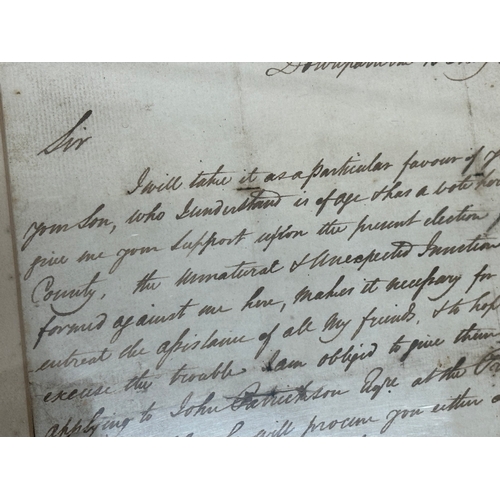 Sir
I will take it as a particular favour of
your Son, who I understand is of age & has a vote
give me your support upon the present election
County, the Unnatural & Unexpected Junction
formed against me here, makes it necessary for
entreat the assistance of all my friends, & to hop
excuse the trouble I am obliged to give them
applying to John Patrickson Esqr. at the
will procure you either